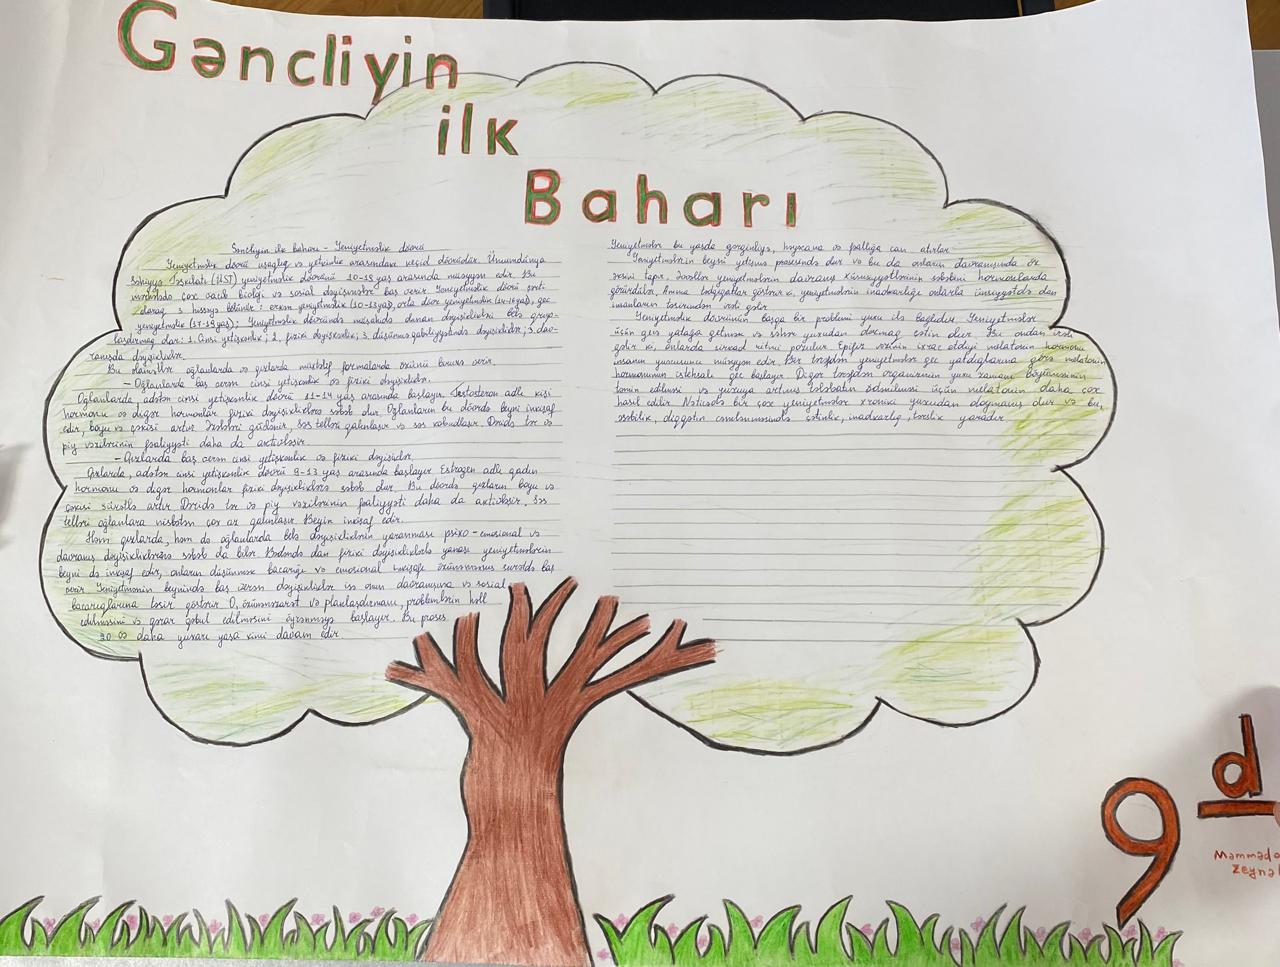 Gəncliyin
ilk
Baharı
Gəncliyin ilk baharı - Yeniyetməlik dövrü
Yeniyetməlik dövrü uşaqlıq və yetkinlik arasındakı keçid dövrüdür. Ümumdünya
Səhiyyə Təşkilatı (ÜST) yeniyetməlik dövrünü 10-19 yaş arasında müəyyən edir. Bu
mərhələdə çox vacib bioloji və sosial dəyişmələr baş verir. Yeniyetməlik dövrü şərti
olaraq 3 hissəyə bölünür: erkən yeniyetməlik (10-13 yaş), orta dövr yeniyetməlik (14-16 yaş), gec
yeniyetməlik (17-19 yaş); Yeniyetməlik dövründə müşahidə olunan dəyişiklikləri belə qrup-
laşdırmaq olar: 1. Cinsi yetişkənlik; 2. fiziki dəyişkənlik; 3. düşünmə qabiliyyətində dəyişikliklər; 5. dav-
ranışda dəyişikliklər.
Bu olanlar oğlanlarda və qızlarda müxtəlif formalarda özünü büruzə verir.
- Oğlanlarda baş verən cinsi yetişkənlik və fiziki dəyişikliklər.
Oğlanlarda adətən cinsi yetişkənlik dövrü 11-14 yaş arasında başlayır. Testosteron adlı kişi
hormonu və digər hormonlar fiziki dəyişikliklərə səbəb olur. Oğlanların bu dövrdə beyni inkişaf
edir, boyu və çəkisi artır. Əzələləri güclənir, səs telləri qalınlaşır və səs kobudlaşır. Dəridə tər və
piy vəzilərinin fəaliyyəti daha da aktivləşir.
- Qızlarda baş verən cinsi yetişkənlik və fiziki dəyişiklər
Qızlarda, adətən cinsi yetişkənlik dövrü 9-13 yaş arasında başlayır. Estrogen adlı qadın
hormonu və digər hormonlar fiziki dəyişikliklərə səbəb olur. Bu dövrdə qızların boyu və
çəkisi sürətlə artır. Dəridə tər və piy vəzilərinin fəaliyyəti daha da aktivləşir. Səs
telləri oğlanlara nisbətən çox az qalınlaşır. Beyin inkişaf edir.
Həm qızlarda, həm də oğlanlarda belə dəyişikliklərin yaranması psixo-emosional və
davranış dəyişikliklərinə səbəb ola bilər. Bədəndə olan fiziki dəyişikliklərlə yanaşı yeniyetmələrin
beyni də inkişaf edir, onların düşünmək bacarığı və emosional inkişafı özünəməxsus surətdə baş
verir. Yeniyetmənin beynində baş verən dəyişikliklər isə onun davranışına və sosial
bacarıqlarına təsir göstərir. O, özünənəzarət və planlaşdırmanı, problemlərin həll
edilməsini və qərar qəbul edilməsini öyrənməyə başlayır. Bu proses
20 və daha yuxarı yaşa kimi davam edir
Yeniyetmələr bu yaşda gərginliyə, həyəcana və təlaşa can atırlar.
Yeniyetmələrin beyni yetişmə prosesində olur və bu da onların davranışında öz
əksini tapır. Əvvəllər yeniyetmələrin davranış xüsusiyyətlərinin səbəbini hormonlarda
görürdülər. Amma tədqiqatlar göstərir ki, yeniyetmələrin inadkarlığı onlarla ünsiyyətdə olan
insanların təsirindən irəli gəlir.
Yeniyetməlik dövrünün başqa bir problemi yuxu ilə bağlıdır. Yeniyetmələr
üçün gec yatağa getmək və səhər yuxudan durmaq çətin olur. Bu ondan irəli
gəlir ki, onlarda sirkad ritmi pozulur. Epifiz vəzinin ifraz etdiyi melatonin hormonu
insanın yuxusunu müəyyən edir. Bir tərəfdən yeniyetmələr gec yatdıqlarına görə melatonin
hormonunun istehsalı gec başlayır. Digər tərəfdən orqanizmin yuxu zamanı böyüməsinin
təmin edilməsi və yuxuya artmış tələbatın ödənilməsi üçün melatonin daha çox
hasil edilir. Nəticədə bir çox yeniyetmələr xroniki yuxudan doymamış olur və bu,
əsəbilik, diqqətin cəmlənməsində çətinlik, inadkarlıq, tərslik yaradır.
9 d
Məmmədo
Zeynə